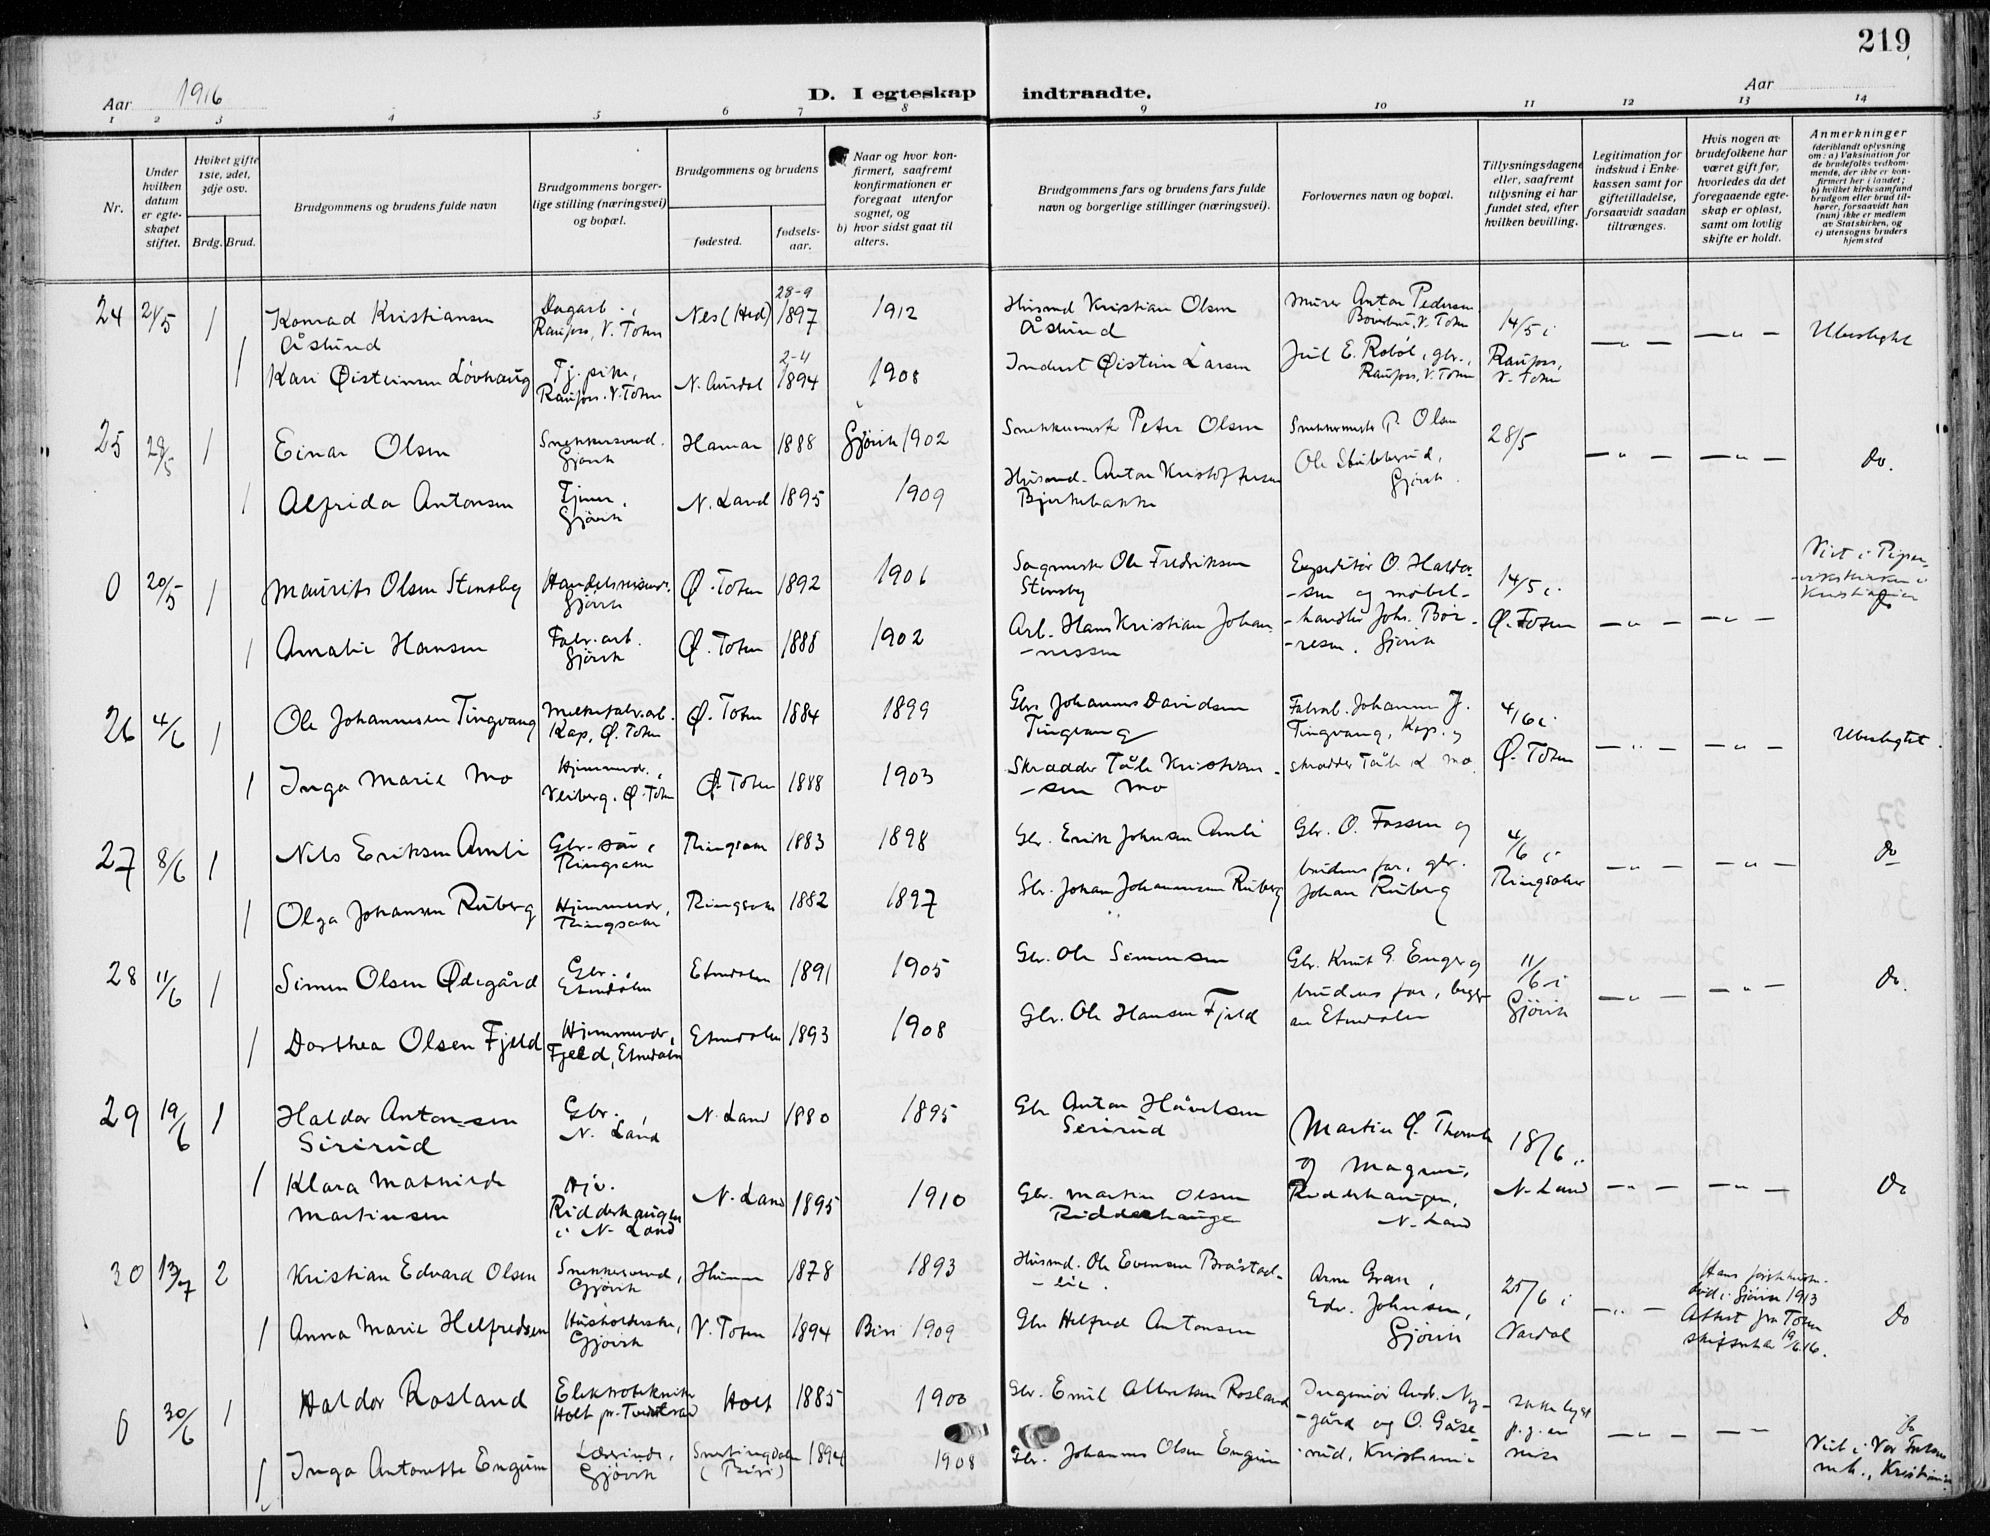 219
Aar 1916
D. I egteskap indtraadte.
Aar
1 2 3 4 5 6 7 8 9 10 11 12 13 14
Nr.
Under hvilken datum er egteskapet stiftet.
Hvilket gifte 1ste, 2det, 3dje osv.
Brdg. Brud.
Brudgommens og brudens fulde navn
Brudgommens borgerlige stilling (næringsvei) og bopæl.
Brudgommens og brudens
fødested.
fødselsaar.
Naar og hvor konfirmert, saafremt konfirmationen er foregaat utenfor sognet, og
b) hvor sidst gaat til alters.
Brudgommens fars og brudens fars fulde navn og borgerlige stillinger (næringsvei).
Forlovernes navn og bopæl.
Tillysningsdagene eller, saafremt tillysning ei har fundet sted, efter hvilken bevilling.
Legitimation for indskud i Enkekassen samt for giftetilladelse, forsaavidt saadan tiltrænges.
Hvis nogen av brudefolkene har været gift før, hvorledes da det foregaaende egteskap er opløst, samt om lovlig skifte er holdt.
Anmerkninger
(deriblandt oplysning om: a) Vaksination for de brudefolks vedkommende, der ikke er konfirmert her i landet;
b) hvilket kirkesamfund brudgom eller brud tilhører, forsaavidt han (hun) ikke er medlem av Statskirken, og
c) utensogns bruders hjemsted
24 21/5 1 Konrad Kristiansen Åslund Dagarb., Raufoss, V. Toten Nes (Hed) 28-9 1897 1912 Husmd Kristian Olsen Åslund Murer Anton Pedersen V. Toten 14/5 i — " — — " — Ubeslegtet
1 Kari Øisteinsen Løvhaug Tj. pike, Raufoss. V. Toten N. Aurdal 2-4 1894 1908 Inderst Øistein Larsen Jul E. Roböl, gbr., Raufoss, V. Toten Raufoss, V. Toten
25 28/5 1 Einar Olsen Snekkersvend. Gjøvik Hamar 1888 Gjøvik 1902 Snekkermstr Peter Olsen Snekkermstr P. Olsen 28/5 — " — — " — do.
1 Alfrida Antonsen Tjener, Gjøvik N. Land 1895 1909 Husmd. Anton Kristoffersen Bjerkebakke Ole Stubberud, Gjøvik.
0 20/5 1 Maurits Olsen Stensby Gjøvik Ø. Toten 1892 1906 Sagmester Ole Fredriksen Stensby Expeditør O. Haldorsen og møbel- 14/5 i Viet i Pipervikskirken i Kristiania do
1 Amalie Hansen Fabr. arb. Gjøvik Ø. Toten 1888 1902 Arb. Hans Kristian Johannessen handler Johs. Börresen. Gjøvik Ø. Toten — " — — " —
26 4/6 1 Ole Johannesen Tingvang Melkefabr. arb. Kap, Ø. Toten Ø. Toten 1884 1899 Gbr. Johannes Davidsen Tingvang Fabrarb. Johannes J. Tingvang, Kap. og 4/6 i — " — — " — Ubeslegtet.
1 Inga Marie Mo Hjemmevr., Veiberg. Ø. Toten Ø. Toten 1888 1903 Skrædder Tåle Kristiansen Mo skrædder Tåle K Mo. Ø. Toten
27 8/6 1 Nils Eriksen Amli Gbr. søn i Ringsaker Ringsaker 1883 1898 Gbr. Erik Johnsen Amli Gbr. O. Fossen og 4/6 i — " — — " — do
1 Olga Johansen Ruberg Hjemmevr, Ringsaker Ringsaker 1882 1897 Gbr. Johan Johannesen Ruberg brudens far, gbr. Johan Ruberg Ringsaker
28 11/6 1 Simen Olsen Ødegård Gbr., Etnedalen Etnedalen 1891 1905 Gbr. Ole Simensen Gbr. Knut G. Enger og 11/6 i — " — — " — do.
1 Dorthea Olsen Fjeld Hjemmevr, Fjeld, Etnedalen Etnedalen 1893 1908 Gbr. Ole Hansen Fjeld brudens far, begge av Etnedalen Gjøvik
29 19/6 1 Haldor Antonsen Sirirud Gbr., N. Land N. Land 1880 1895 Gbr Anton Håvelsen Serirud Martin O. 18/6 i
1 Klara Mathilde Martinsen Hjv. Ridderhaugen i N. Land N. Land 1895 1910 Gbr. Martin Olsen Ridderhaugen og Magnus Ridderhaugen, N. Land N. Land — " — — " — do
30 13/7 2 Kristian Edvard Olsen Snekkersvend, Gjøvik 1878 1893 Husmd. Ole Evensen Bråstad-eie. Arne Gran, 25/6 i — " — Hans første hustru død i Gjøvik 1913
1 Anna Marie Helfredsen Husholderske, Gjøvik V. Toten 1894 Biri 1909 Gbr Helfred Antonsen Edv. Johnsen, Gjøvik Vardal Attest fra Toten skifteret 19/6 16. do
0 30/6 1 Haldor Rosland Elektrotekniker Holt pr. Tvedestrand Holt 1885 1900 Gbr. Emil Albertsen Rosland Ingeniør And. Nygård og O. Gåserud, Kristiania ikke lyst p. g. av — " — — " — do
1 Inga Antonette Engum Lærerinde, Gjøvik Snertingdalen (Biri) 1894 1908 Gbr. Johannes Olsen Engum Viet i Vor Frelsers k., Kristiania